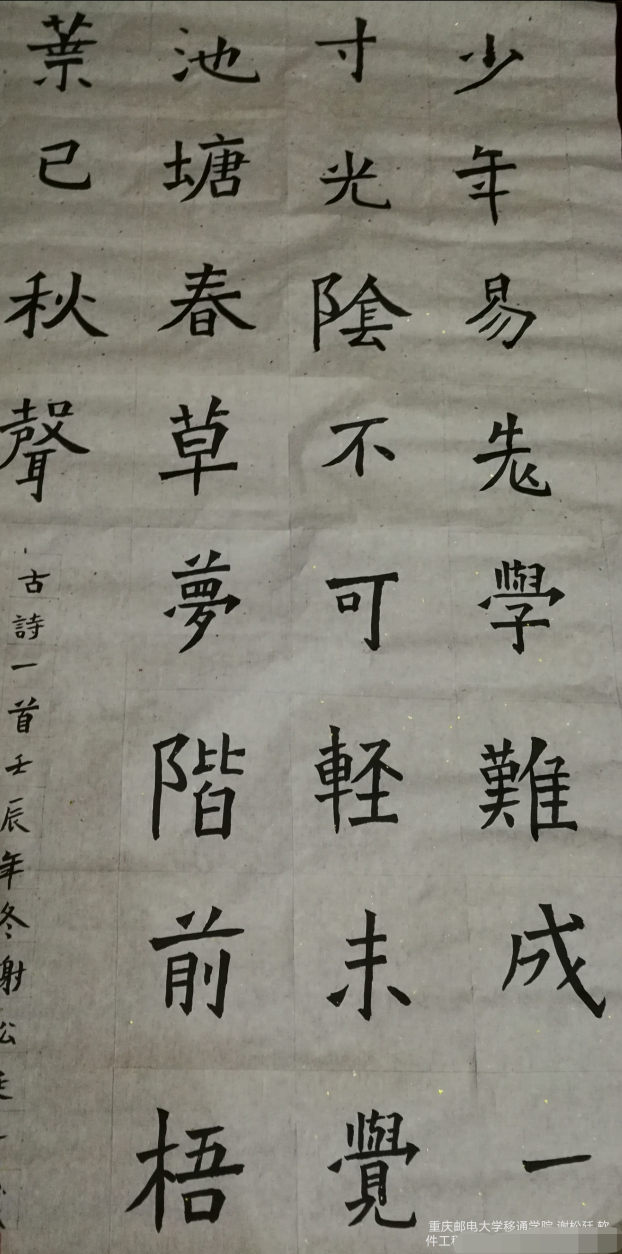 少年易老學難成一
寸光陰不可軽未覺
池塘春草夢階前梧
葉已秋聲
古詩一首壬辰年冬謝松
重庆邮电大学移通学院 谢松廷 软
件工程